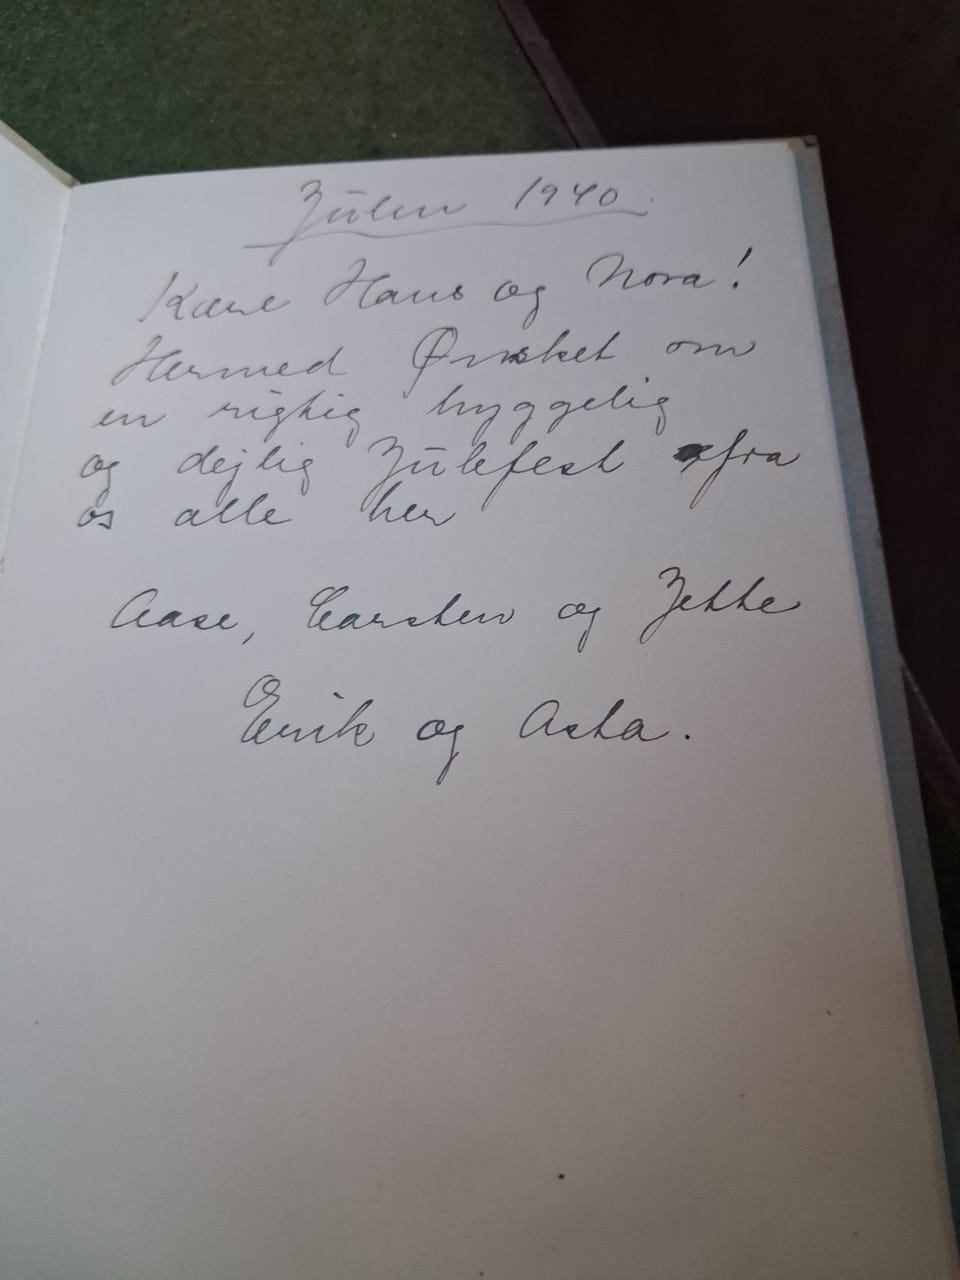 Julen 1940.
Kære Hans og Nora!
Hermed Ønsket om
en rigtig hyggelig
og dejlig Julefest fra
os alle her
Aase, Carsten og Jette
Erik og Asta.